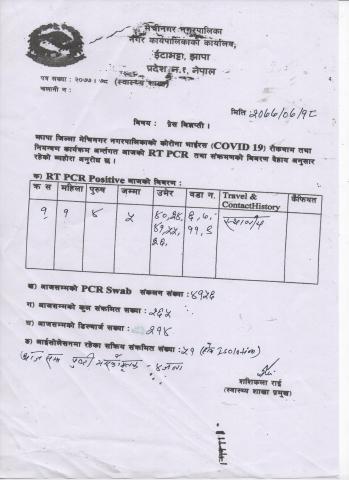 मेचीनगर नगरपालिका
नगर कार्यपालिकाको कार्यालय,
ईटाभट्टा, झापा
प्रदेश न.१, नेपाल
पत्र सख्या : २०७७।७८ (स्वास्थ्य शाखा)
चलानी न :
मिति
विषय : प्रेस विज्ञप्ती ।
झापा जिल्ला मेचिनगर नगरपालिकाको कोरोना भाईरस (COVID 19) रोकथाम तथा
नियन्त्रण कार्यक्रम अर्न्तगत आजको RT PCR तथा संक्रमणको बिबरण देहाय अनुसार
रहेको व्यहोरा अनुरोध छ ।
क) RT PCR Positive आजको बिबरण :
क्र स महिला पुरुष जम्मा उमेर वडा न. Travel & ContactHistory कैफियत
१ १ ४ ५ ४०,२४, ६, ७, स्थानीय
४१,५५, ११, ९
२६,
ख) आजसम्मको PCR Swab संकलन संख्या : ४१२६
ग) आजसम्मको कूल संक्रमित सख्या : २६५
घ) आजसम्मको डिस्चार्ज सख्या : २१४
ङ) आईसोलेसनमा रहेका सक्रिय संक्रमित संख्या : ५१ (होम Isolation)
शशिकला राई
(स्वास्थ्य शाखा प्रमुख)